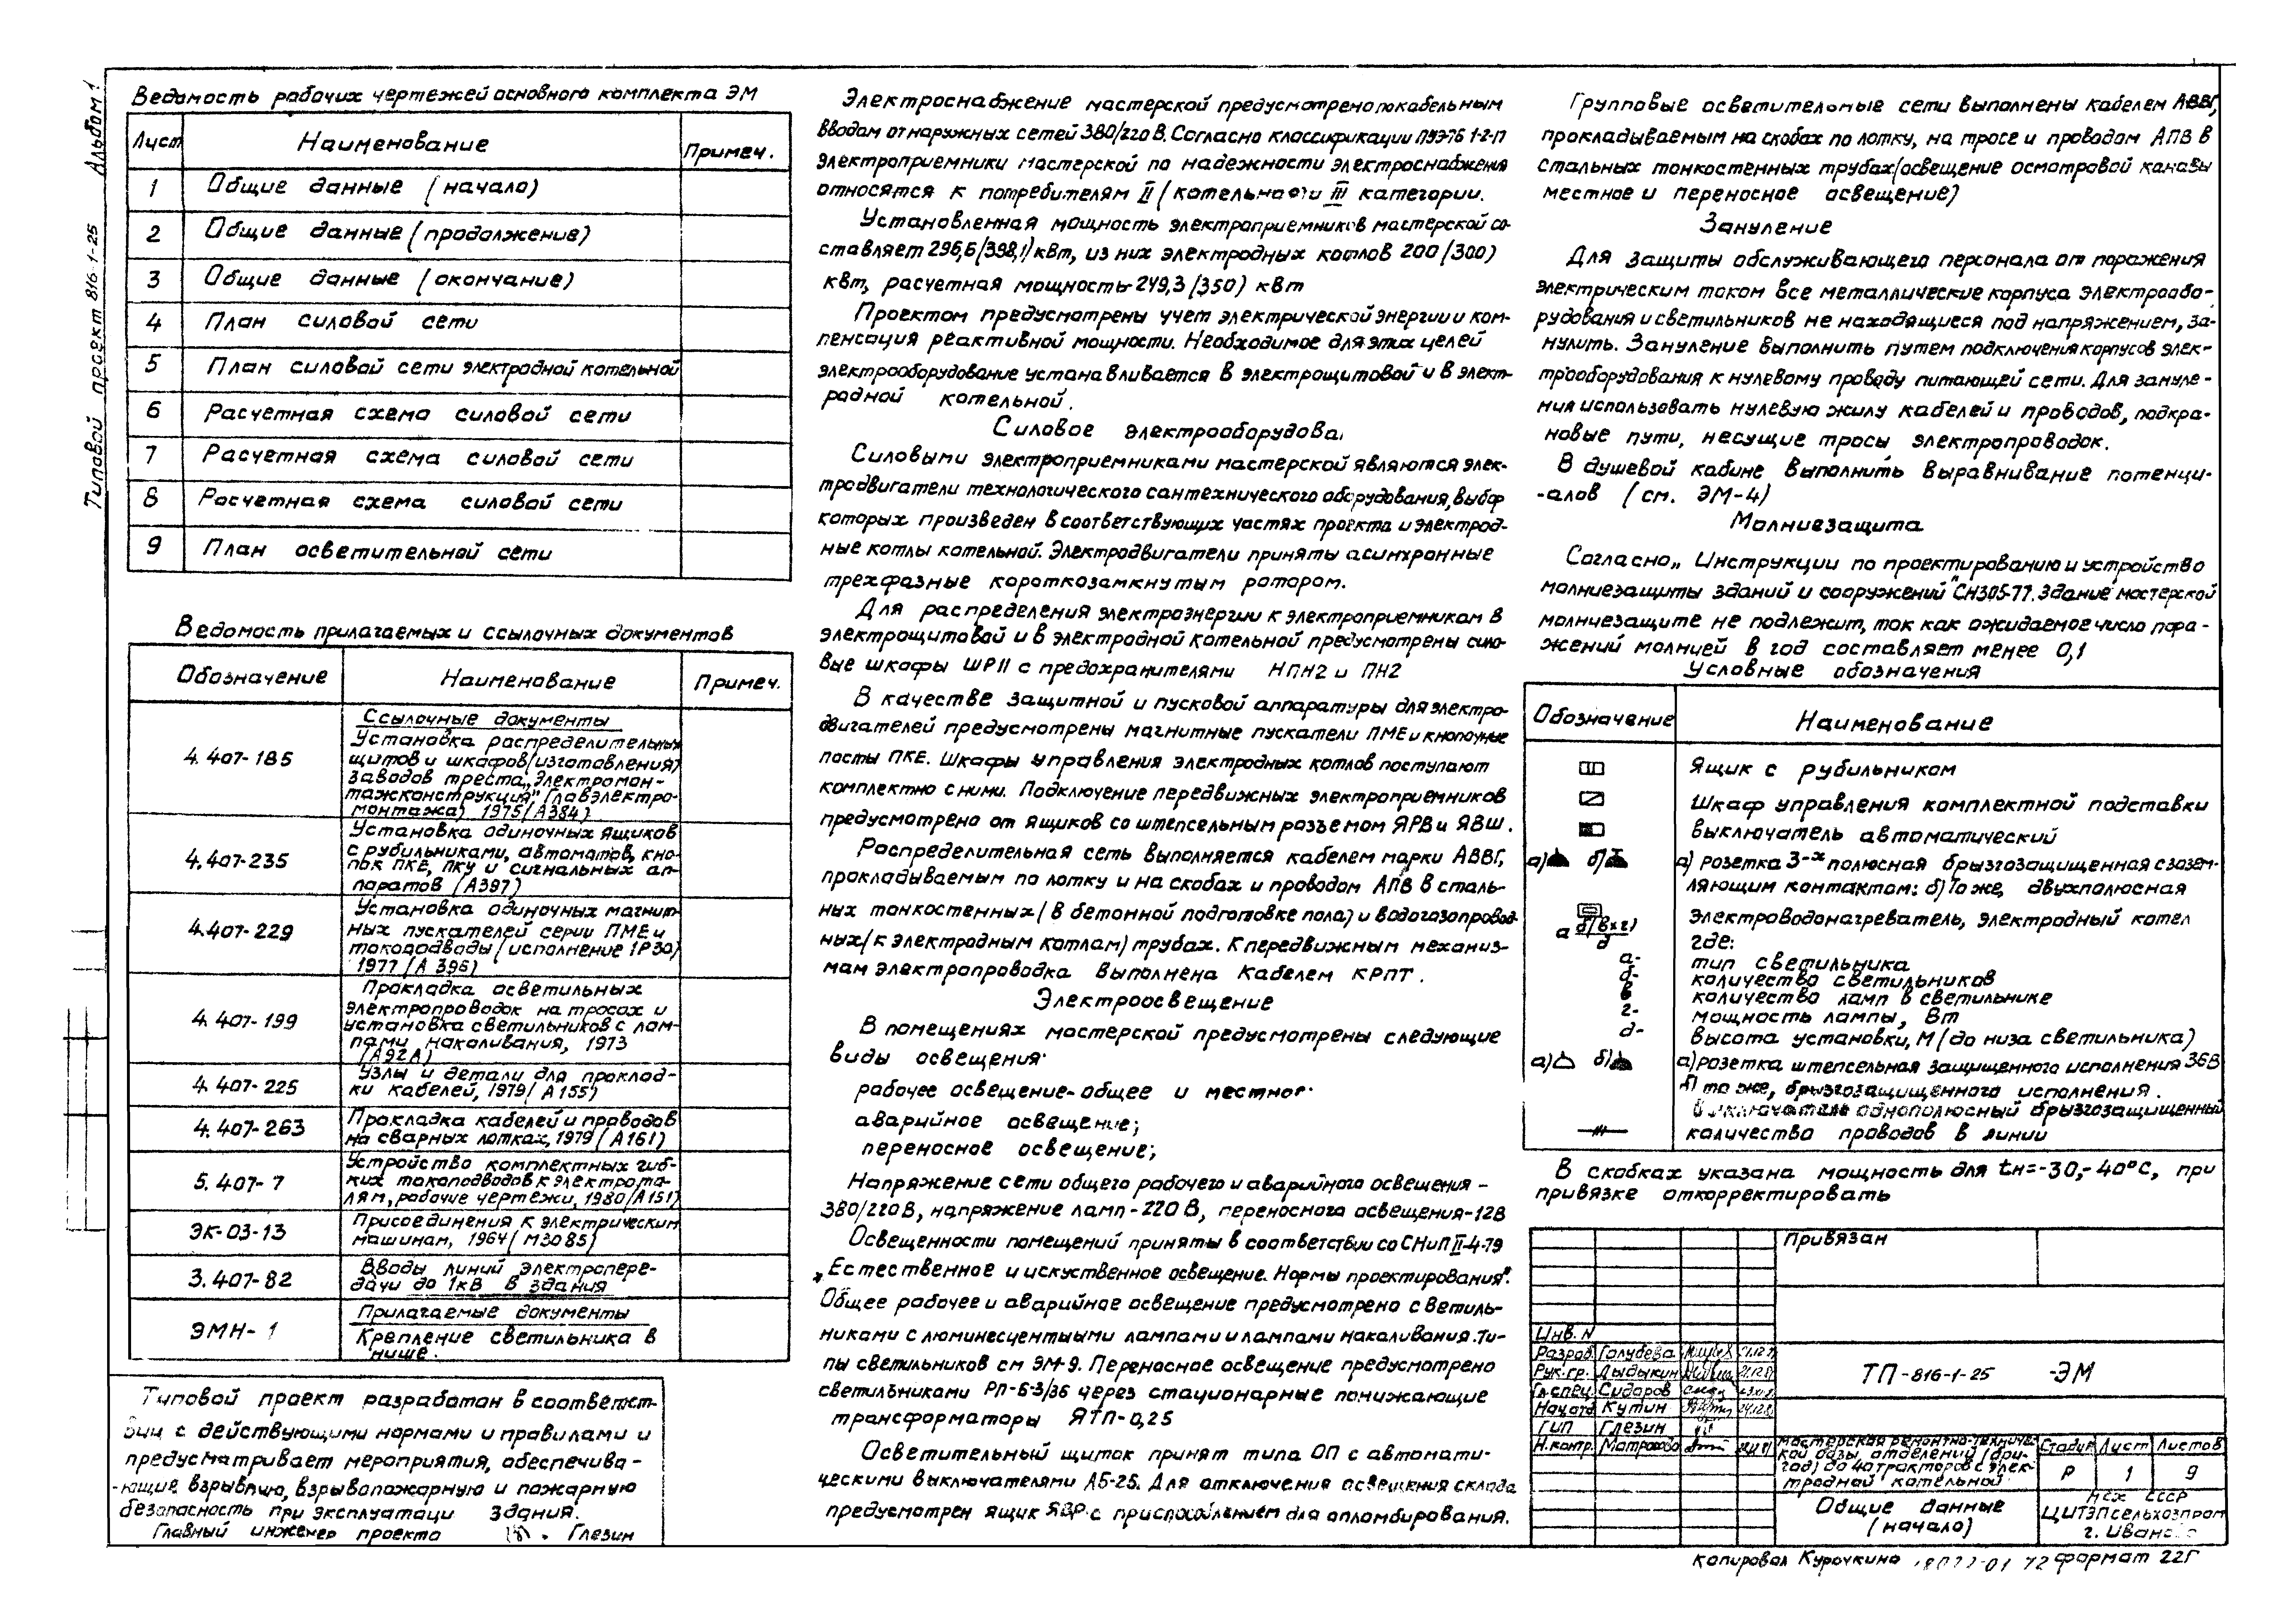 Альбом 1
Типовой проект 816-1-25
Ведомость рабочих чертежей основного комплекта ЭМ
Лист Наименование Примеч.
1 Общие данные (начало)
2 Общие данные (продолжение)
3 Общие данные (окончание)
4 План силовой сети
5 План силовой сети электродной котельной
6 Расчетная схема силовой сети
7 Расчетная схема силовой сети
8 Расчетная схема силовой сети
9 План осветительной сети
Ведомость прилагаемых и ссылочных документов
Обозначение Наименование Примеч.
Ссылочные документы
4.407-185 Установка распределительных
щитов и шкафов (изготавления)
заводов треста „Электромон-
тажконструкция" Главэлектро-
монтажа) 1975 (А384)
4.407-235 Установка одиночных ящиков
с рубильниками, автоматов, кно-
пок ПКЕ, ПКУ и сигнальных ап-
паратов (А397)
4.407-229 Установка одиночных магнит-
ных пускателей серии ПМЕ и
токоподводы (исполнение IР30)
1977 (А 396)
4.407-199 Прокладка осветильных
электропроводок на тросах и
установка светильников с лам-
пами накаливания, 1973
(А92А)
4.407-225 Узлы и детали для проклад-
ки кабелей, 1979 (А155)
4.407-263 Прокладка кабелей и проводов
на сварных лотках, 1979 (А161)
5.407-7 Устройство комплектных гиб-
ких токоподводов к электрота-
лям, рабочие чертежи, 1980 (А151)
ЭК-03-13 Присоединения к электрическим
машинам, 1964 (М3085)
3.407-82 Вводы линий электропере-
дачи до 1кВ в здания
Прилагаемые документы
ЭМН-1 Крепление светильника в
нише.
Типовой проект разработан в соответст-
вии с действующими нормами и правилами и
предусматривает мероприятия, обеспечива-
-ющие взрывную, взрывопожарную и пожарную
безопасность при эксплуатаци здания.
Главный инженер проекта Глезин
Электроснабжение мастерской предусмотрено по кабельным
вводам от наружных сетей 380/220 В. Согласно классификации ПУЭ-76 1-2-17
электроприемники мастерской по надежности электроснабжения
относятся к потребителям II (котельная) и III категории.
Установленная мощность электроприемников мастерской со-
ставляет 296,6 (398,1) кВт, из них электродных котлов 200 (300)
кВт, расчетная мощность-249,3 (350) кВт
Проектом предусмотрены учет электрической энергии и ком-
пенсация реактивной мощности. Необходимое для этих целей
электрооборудование устанавливается в электрощитовой и в элект-
родной котельной.
Силовое электрооборудова
Силовыми электроприемниками мастерской являются элек-
тродвигатели технологического сантехнического оборудования, выбор
которых произведен в соответствующих частях проекта и электрод-
ные котлы котельной. Электродвигатели приняты асинхронные
трехфазные короткозамкнутым ротором.
Для распределения электроэнергии к электроприемникам в
электрощитовой и в электродной котельной предусмотрены сило-
вые шкафы ШР11 с предохранителями НПН2 и ПН2
В качестве защитной и пусковой аппаратуры для электро-
двигателей предусмотрены магнитные пускатели ПМЕ и кнопочные
посты ПКЕ. Шкафы управления электродных котлов поступают
комплектно с ними. Подключение передвижных электроприемников
предусмотрено от ящиков со штепсельным разъемом ЯРВ и ЯВШ.
Распределительная сеть выполняется кабелем марки АВВГ,
прокладываемым по лотку и на скобах и проводом АПВ в сталь-
ных тонкостенных (в бетонной подготовке пола) и водогазопровод-
ных (к электродным котлам) трубах. К передвижным механиз-
мам электропроводка выполнена кабелем КРПТ.
Электроосвещение
В помещениях мастерской предусмотрены следующие
виды освещения:
рабочее освещение-общее и местное
аварийное освещение;
переносное освещение;
Напряжение сети общего рабочего и аварийного освещения -
380/220В, напряжение ламп-220 В, переносного освещения-12В
Освещенности помещений приняты в соответствии со СНиП II-4-79
„Естественное и искуственное освещение. Нормы проектирования".
Общее рабочее и аварийное освещение предусмотрено светиль-
никами с люминесцентыыми лампами и лампами накаливания. Ти-
пы светильников см ЭМ-9. Переносное освещение предусмотрено
светильниками РП-6-3/36 через стационарные понижающие
трансформаторы ЯТП-0,25
Осветительный щиток принят типа ОП с автомати-
ческими выключателями АБ-25. Для отключения освещения склада
предусмотрен ящик ЯВР с приспособлением для опломбирования.
Групповые осветительные сети выполнены кабелем АВВГ,
прокладываемым на скобах по лотку, на тросе и проводом АПВ в
стальных тонкостенных трубах (освещение осмотровой канавы
местное и переносное освещение)
Зануление
Для защиты обслуживающего персонала от поражения
электрическим током все металлические корпуса электрообо-
рудования и светильников не находящиеся под напряжением, за-
нулить. Зануление выполнить путем подключения корпусов элек-
трооборудования к нулевому проводу питающей сети. Для зануле-
ния использовать нулевую жилу кабелей и проводов, подкра-
новые пути, несущие тросы электропроводок.
В душевой кабине выполнить выравнивание потенци-
-алов (см. ЭМ-4)
Молниезащита
Согласно „Инструкции по проектированию и устройство
молниезащиты зданий и сооружений" СН305-77. Здание мастерской
молниезащите не подлежит, так как ожидаемое число пора-
жений молнией в год составляет менее 0,1
Условные обозначения
Обозначение Наименование
Ящик с рубильником
Шкаф управления комплектной подставки
выключатель автоматический
а) б) а) розетка 3-х полюсная брызгозащищенная с зазем-
ляющим контактом: б) То же, двухполюсная
электроводонагреватель, электродный котел
а б(вхг)/д где:
а- тип светильника
б- количество светильников
в количество ламп в светильнике
г- мощность лампы, Вт
д- высота установки, М (до низа светильника)
а) б) а) розетка штепсельная защищенного исполнения 36В
б) то же, брызгозащищенного исполнения.
выключатель однополюсный брызгозащищенный
количество проводов в линии
В скобках указана мощность для tн=-30,-40°С, при
привязке откорректировать
Привязан
Инв. N
Разраб. Голубева
Рук.гр. Дыдыкин
Гл.спец Сидоров
Нач.отд Кутин
ГИП Глезин
Н.контр. Матросова
ТП-816-1-25 -ЭМ
Мастерская ремонтно-техничес-
кой базы, отделений (бри-
гад) до 40 тракторов с элек-
тродной котельной
Стадия Лист Листов
Р 1 9
Общие данные
(начало)
МСХ СССР
ЦИТЭПсельхозпром
г. Иваново
Копировал Курочкина 72 формат 22Г